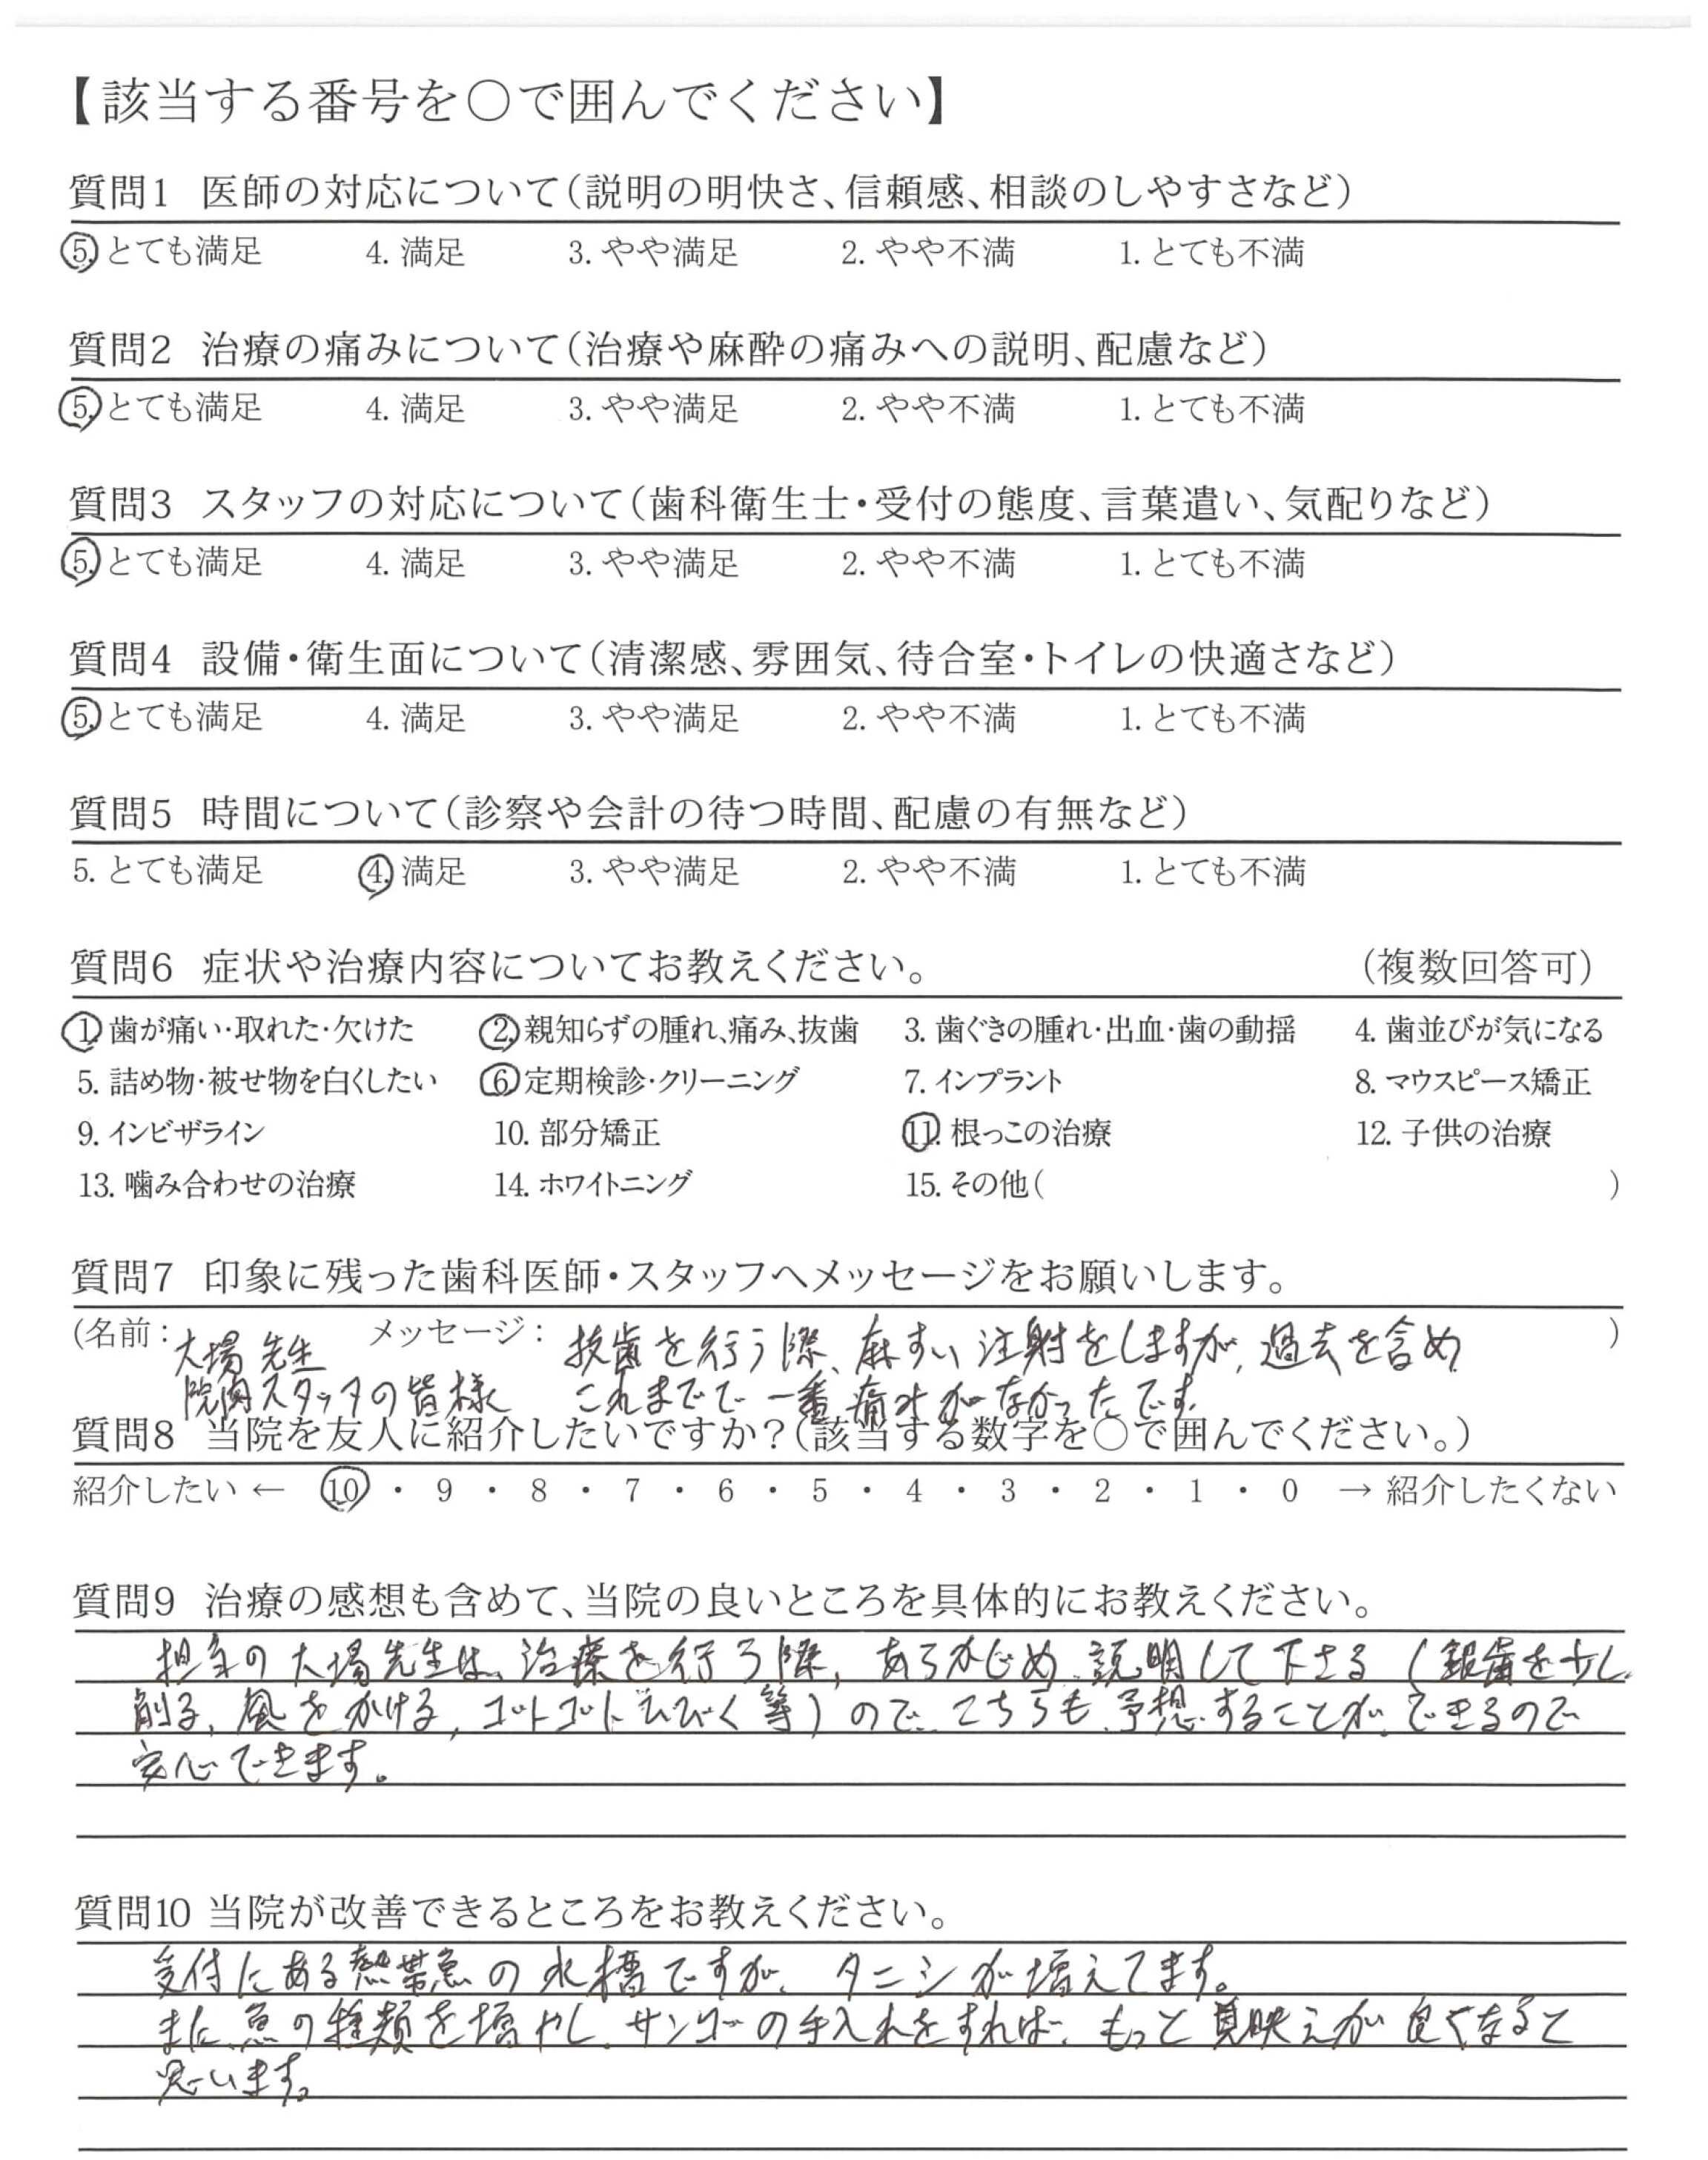 【該当する番号を○で囲んでください】
質問1 医師の対応について（説明の明快さ、信頼感、相談のしやすさなど）
5. とても満足 4. 満足 3. やや満足 2. やや不満 1. とても不満
質問2 治療の痛みについて（治療や麻酔の痛みへの説明、配慮など）
5. とても満足 4. 満足 3. やや満足 2. やや不満 1. とても不満
質問3 スタッフの対応について（歯科衛生士・受付の態度、言葉遣い、気配りなど）
5. とても満足 4. 満足 3. やや満足 2. やや不満 1. とても不満
質問4 設備・衛生面について（清潔感、雰囲気、待合室・トイレの快適さなど）
5. とても満足 4. 満足 3. やや満足 2. やや不満 1. とても不満
質問5 時間について（診察や会計の待つ時間、配慮の有無など）
5. とても満足 4. 満足 3. やや満足 2. やや不満 1. とても不満
質問6 症状や治療内容についてお教えください。 （複数回答可）
1. 歯が痛い・取れた・欠けた 2. 親知らずの腫れ、痛み、抜歯 3. 歯ぐきの腫れ・出血・歯の動揺 4. 歯並びが気になる
5. 詰め物・被せ物を白くしたい 6. 定期検診・クリーニング 7. インプラント 8. マウスピース矯正
9. インビザライン 10. 部分矯正 11. 根っこの治療 12. 子供の治療
13. 噛み合わせの治療 14. ホワイトニング 15. その他（ ）
質問7 印象に残った歯科医師・スタッフへメッセージをお願いします。
（名前： 大場先生 メッセージ： 抜歯を行う際、麻すい注射をしますが、過去を含め ）
院内スタッフの皆様 これまでで一番痛みがなかったです。
質問8 当院を友人に紹介したいですか？（該当する数字を○で囲んでください。）
紹介したい ← 10 ・ 9 ・ 8 ・ 7 ・ 6 ・ 5 ・ 4 ・ 3 ・ 2 ・ 1 ・ 0 → 紹介したくない
質問9 治療の感想も含めて、当院の良いところを具体的にお教えください。
担当の大場先生は、治療を行う際、あらかじめ説明して下さる（銀歯を少し
削る、風をかける、ゴトゴトひびく等）ので、こちらも予想することができるので
安心できます。
質問10 当院が改善できるところをお教えください。
受付にある熱帯魚の水槽ですが、タニシが増えてます。
また魚の種類を増やし、サンゴの手入れをすれば、もっと見映えが良くなると
思います。